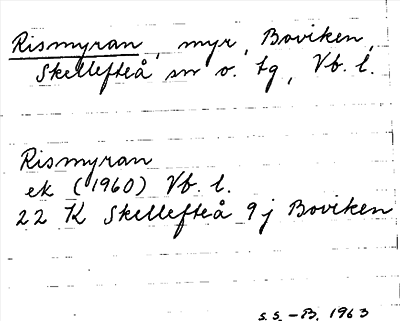 Rismyran, myr, Boviken,
Skellefteå sn o. tg, Vb. l.
Rismyran
ek (1960) Vb. l.
22 K Skellefteå 9j Boviken
S.S.-B. 1963